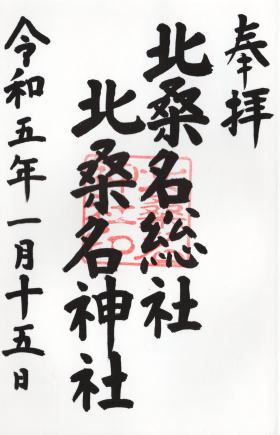 奉拝
北桑名総社
北桑名神社
令和五年一月十五日